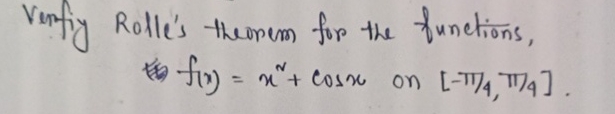 Verify Rolle's theorem for the functions,
f(x) = x² + cosx on [-π/4, π/4].